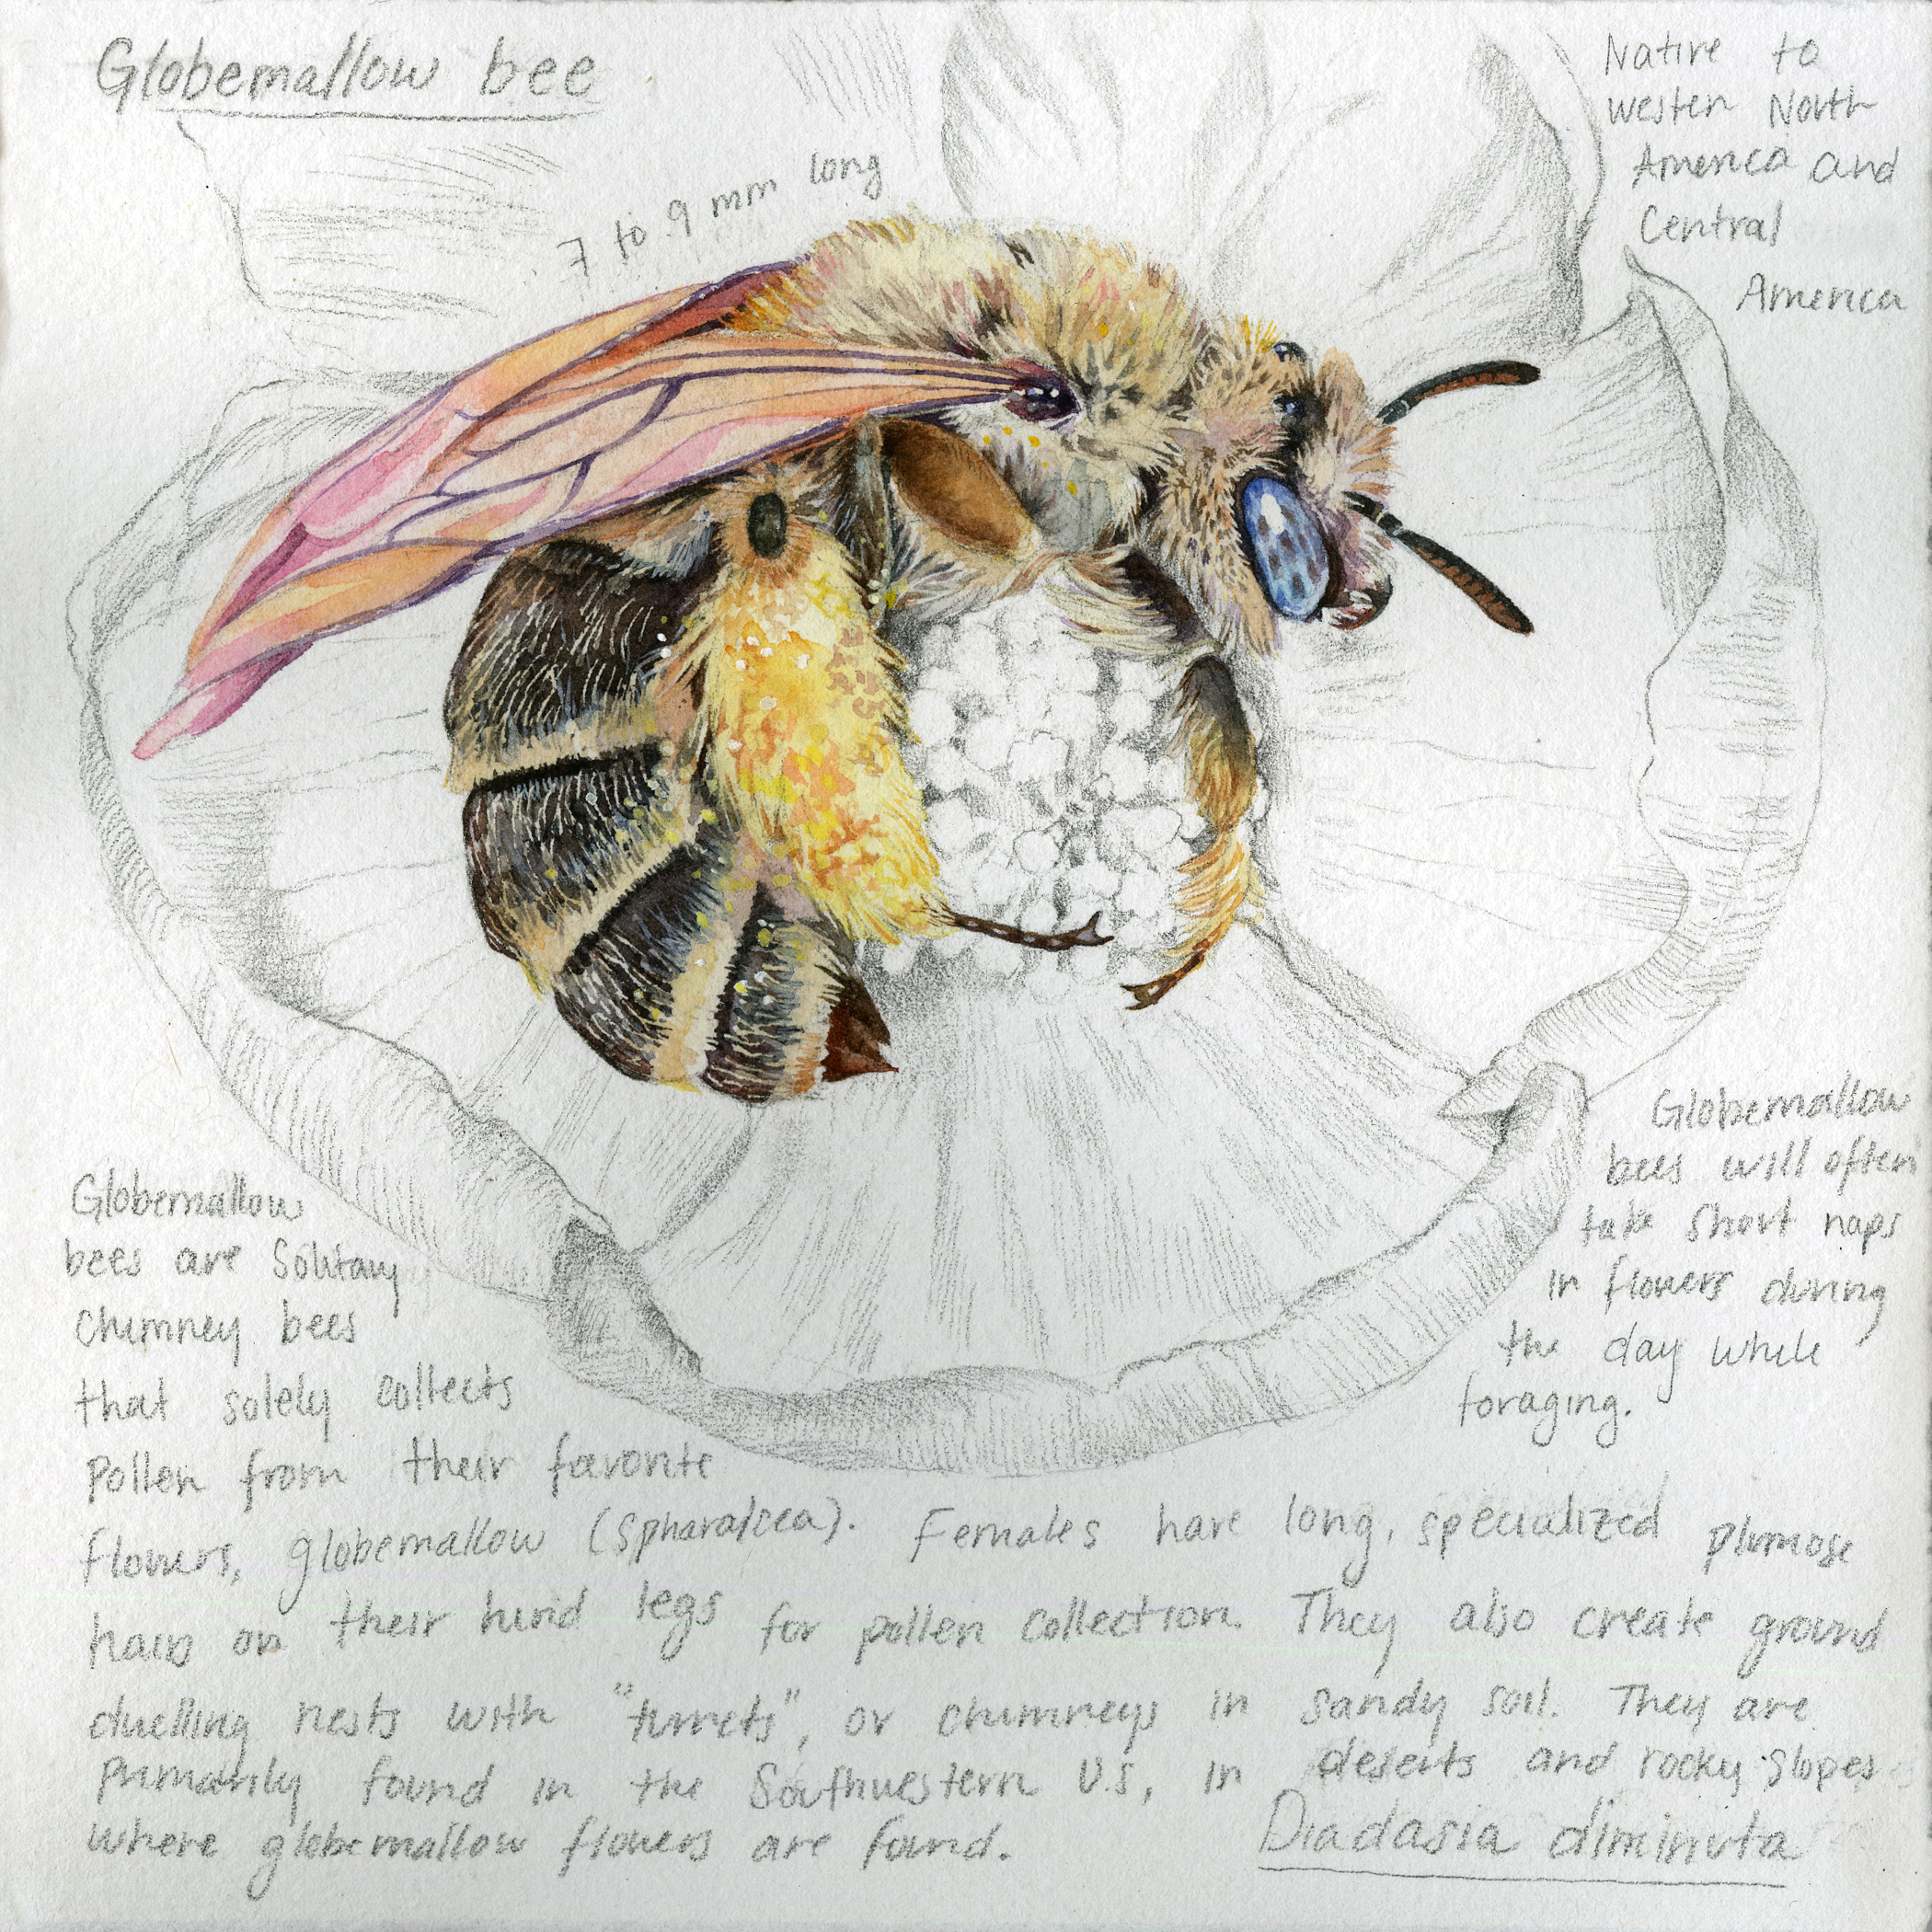 Globemallow bee
7 to 9 mm long
Native to
westen North
America and
Central
America
Globemallow
bees will often
take short naps
in flowers during
the day while
foraging.
Globemallow
bees are Solitary
chimney bees
that solely collects
Pollen from their favorite
flowers, globemallow (Spharalcea). Females have long, specialized plumose
hairs on their hind legs for pollen collection. They also create ground
duelling nests with "turrets", or chimneys in sandy soil. They are
primarily found in the Southwestern U.S, in deserts and rocky slopes
where globemallow flowers are found.
Diadasia diminuta